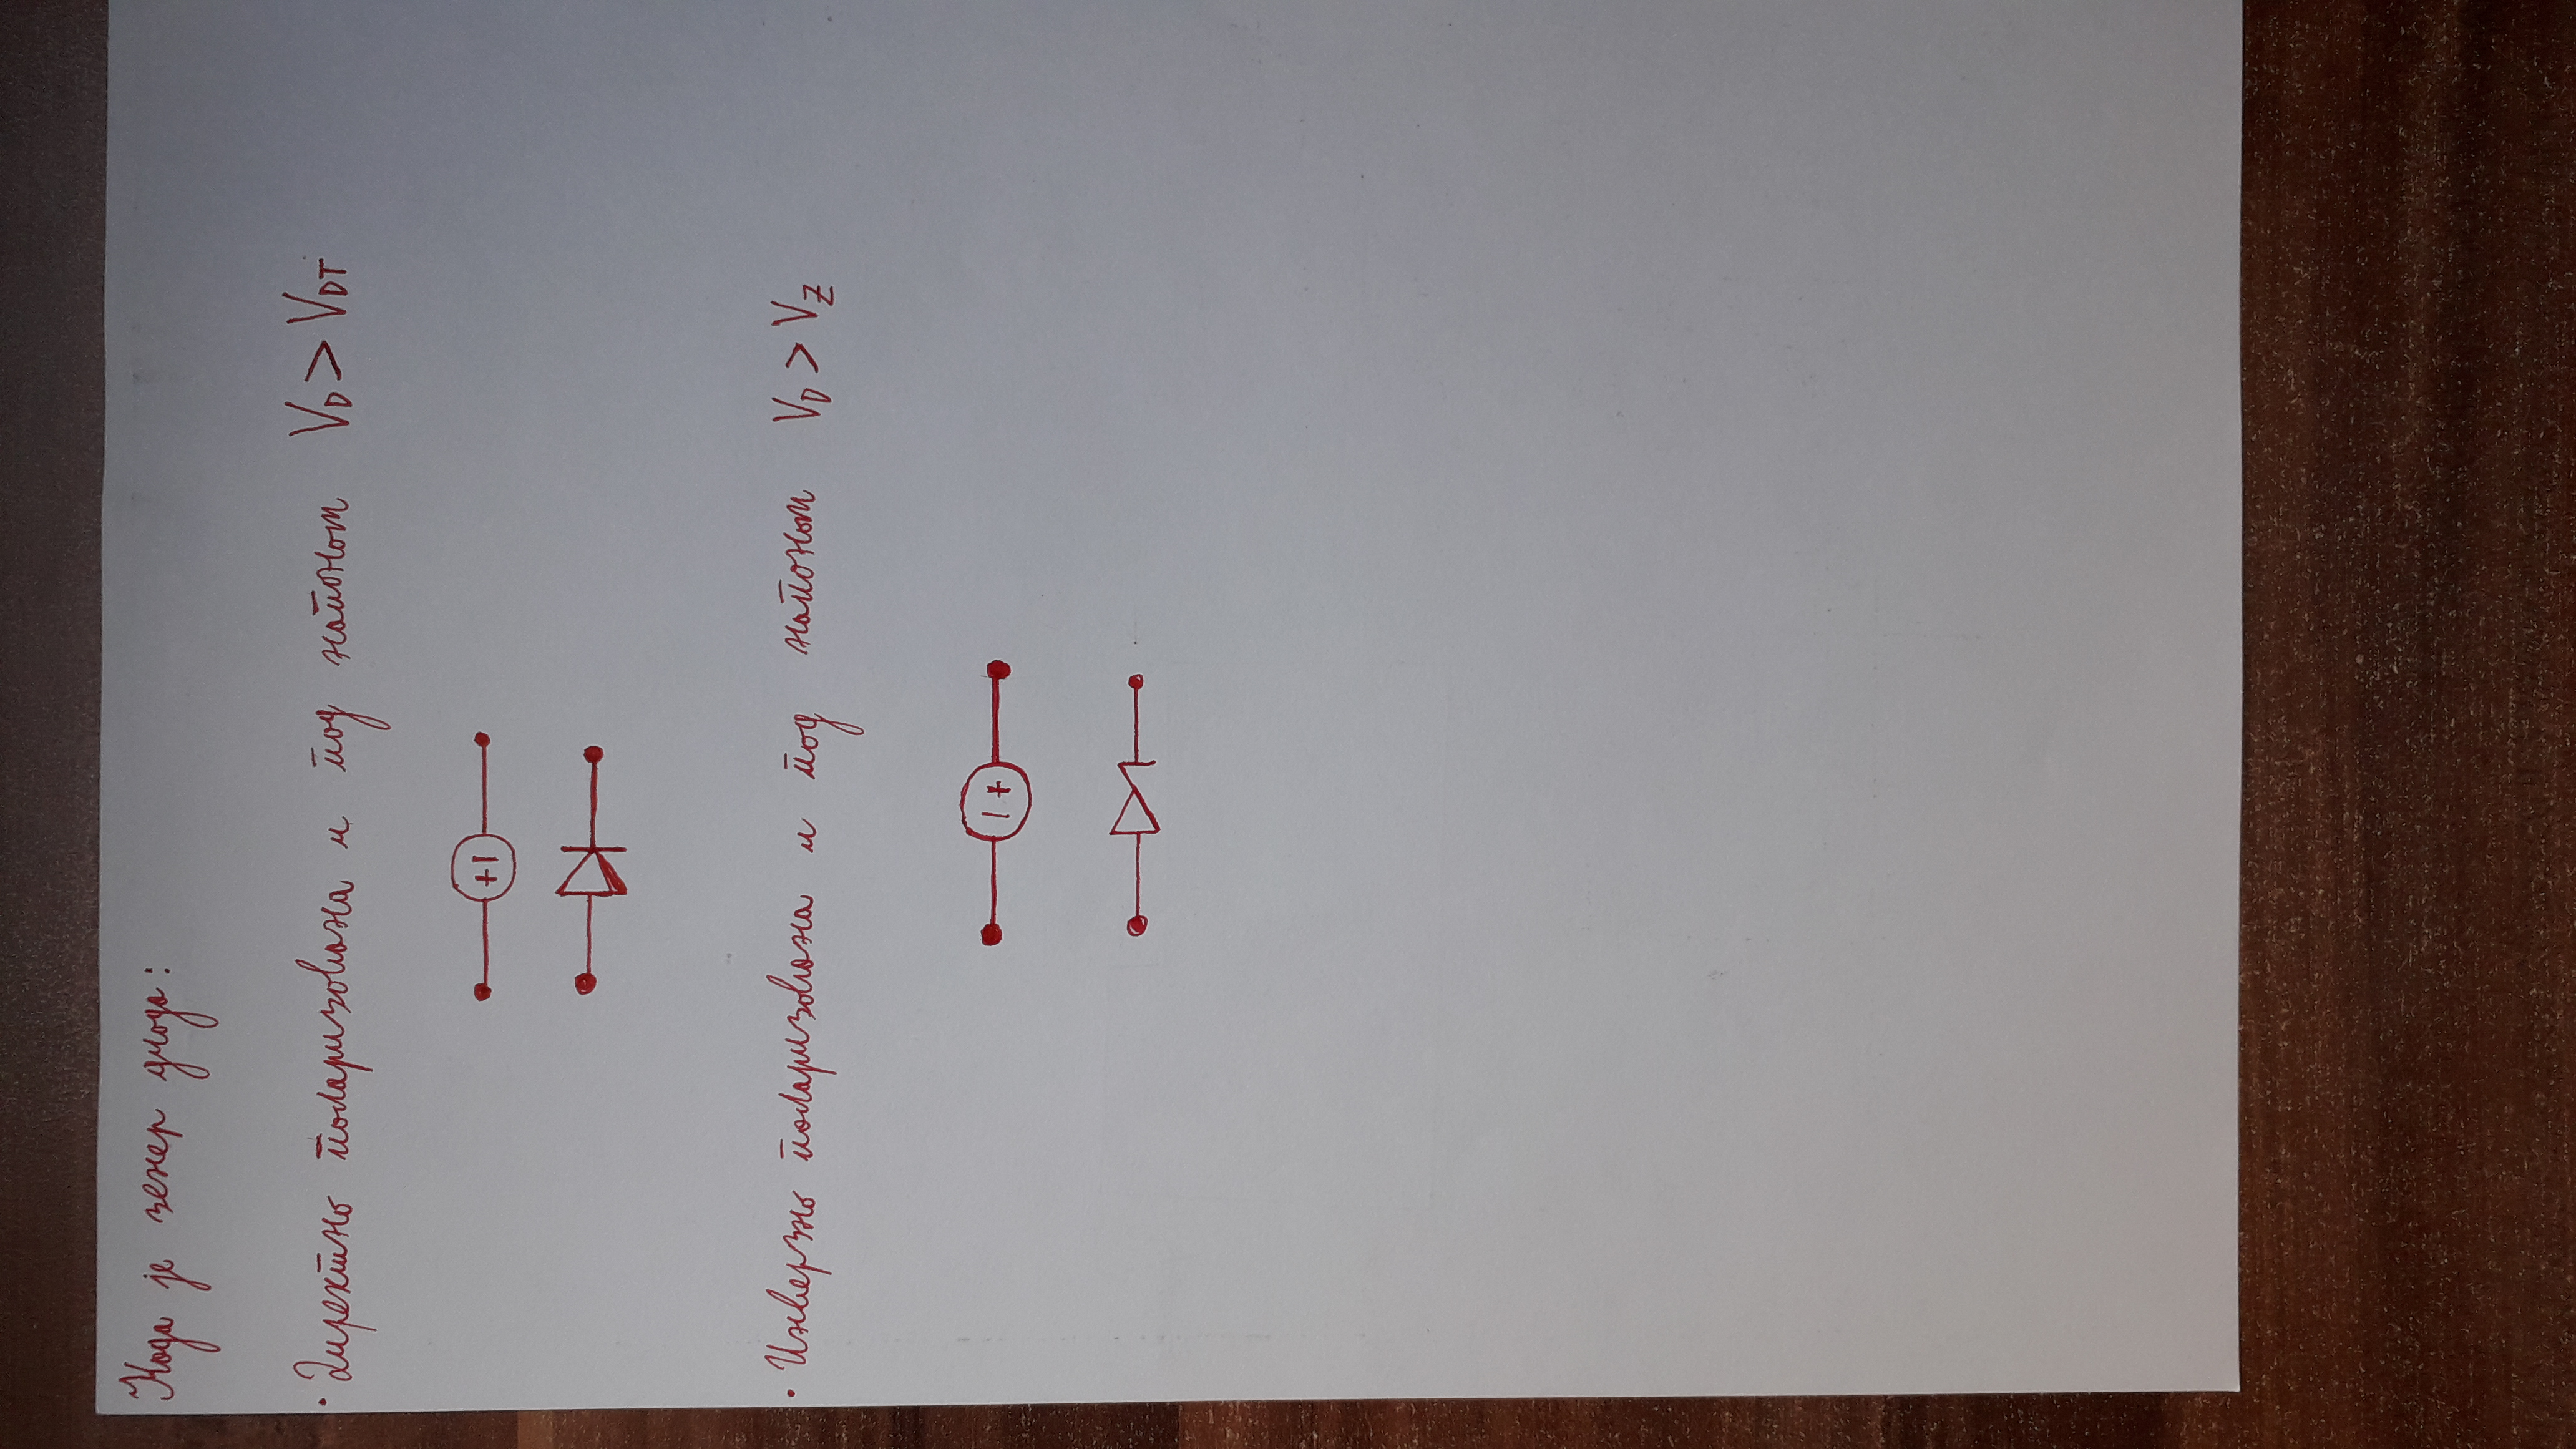 Када је зенер диода:
· Директно поларизована и под напоном V_D > V_DT
+ I
· Инверзно поларизована и под напоном V_D > V_Z
I +